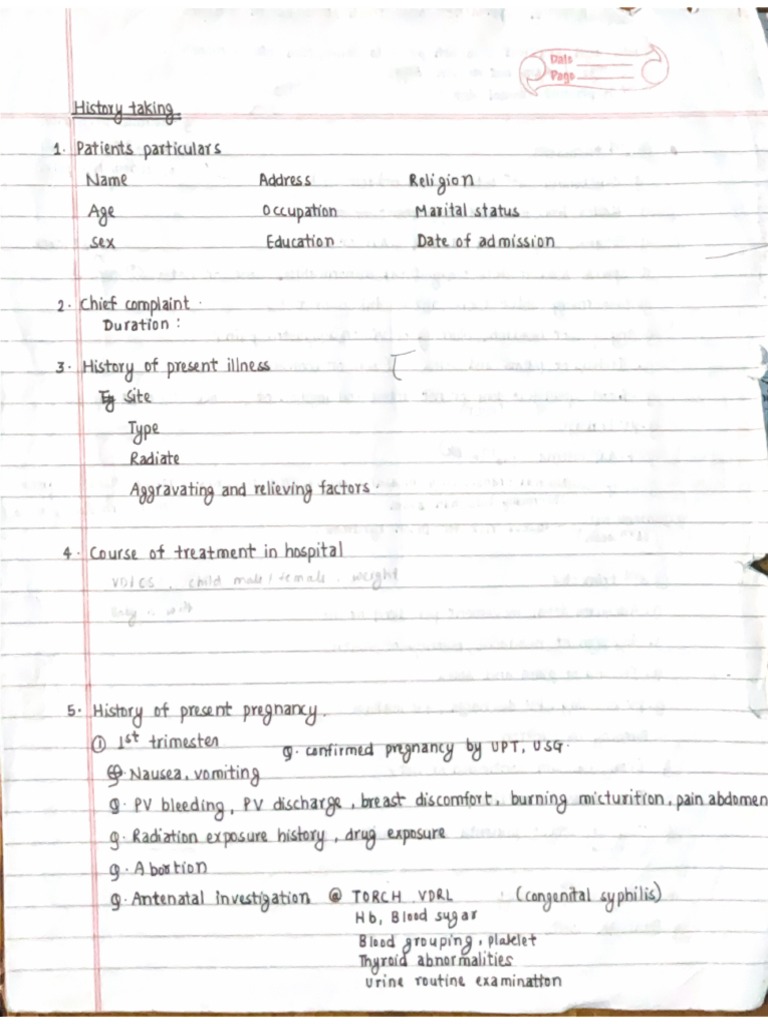 Date
Page
History taking.
1. Patients particulars
Name Address Religion
Age Occupation Marital status
sex Education Date of admission
2. Chief complaint.
Duration :
3. History of present illness
Site
Type
Radiate
Aggravating and relieving factors.
4. Course of treatment in hospital
child male/female, weight
5. History of present pregnancy.
① 1st trimester g. confirmed pregnancy by UPT, USG.
Nausea, vomiting
g. PV bleeding, PV discharge, breast discomfort, burning micturition, pain abdomen
g. Radiation exposure history, drug exposure
g. Abortion
g. Antenatal investigation @ TORCH VDRL (congenital syphilis)
Hb, Blood sugar
Blood grouping, platelet
Thyroid abnormalities
Urine routine examination